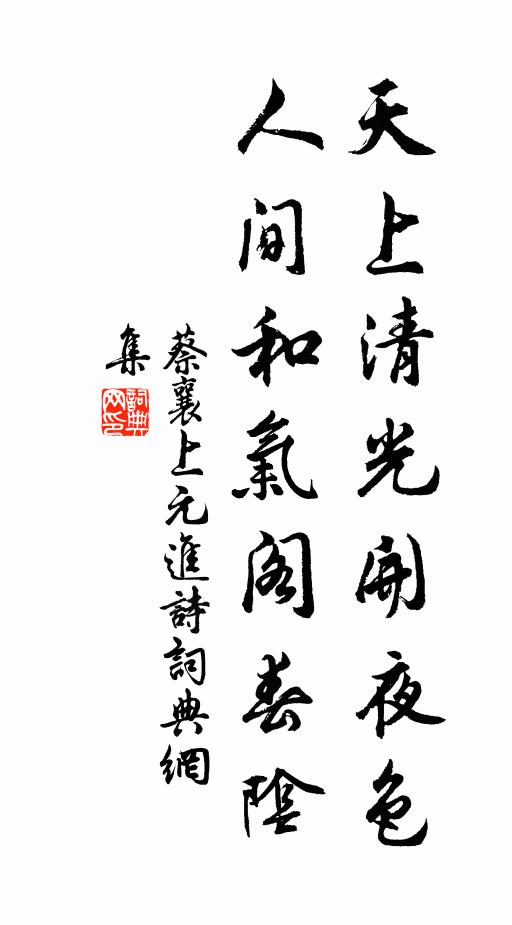 天上清光開夜色
人間和氣閣春陰
蔡襄上元進詩詞典網
集
詞典網印